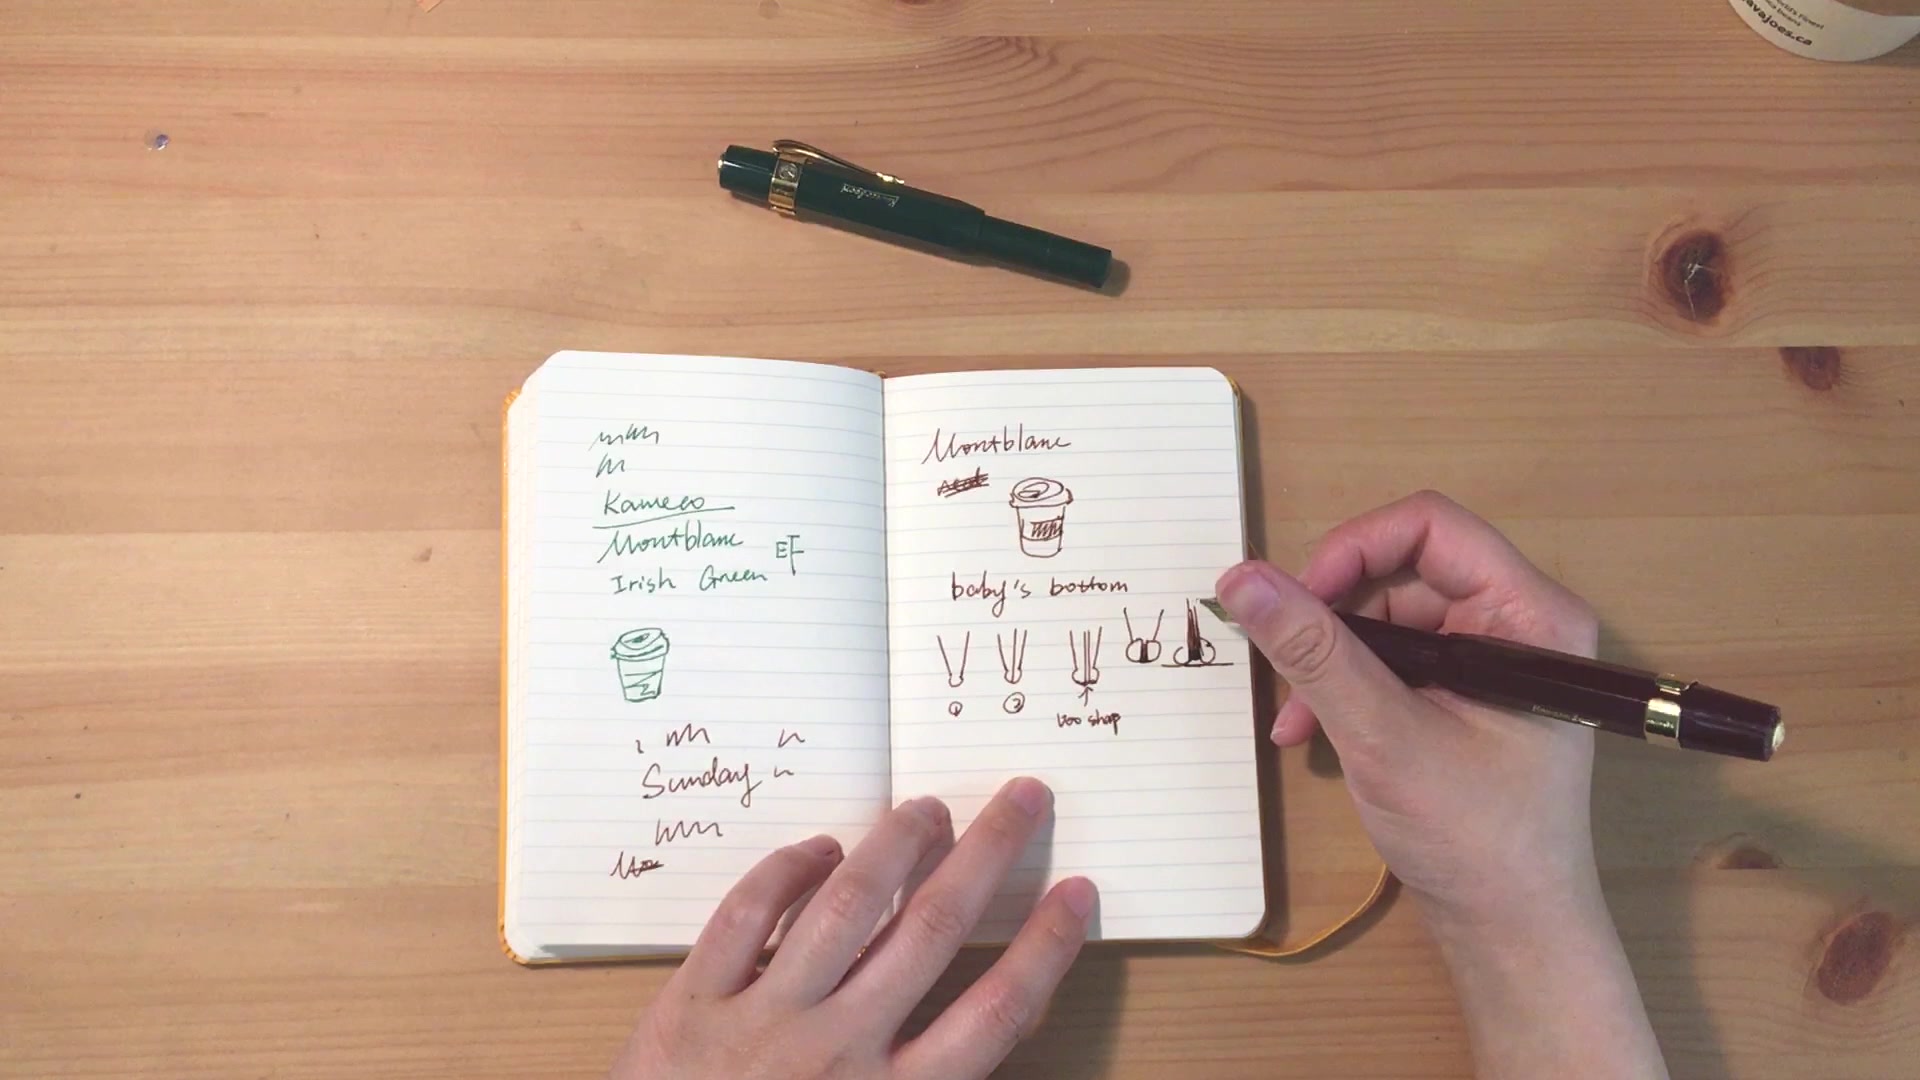 Kaweco
Montblanc
EF
Irish Green
Sunday
Montblanc
baby's bottom
1
2
too shap
javajoes.ca